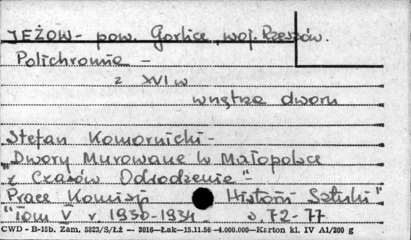 JEŻOW - pow. Gorlice, woj. Rzeszów.
Polichromia -
z XVI w
wnętrze dworu
Stefan Komornicki -
"Dwory Murowane w Małopolsce
z Czasów Odrodzenia"
Prace Komisji Historii Sztuki"
"Tom V r. 1930-1934 s. 72-77
CWD - B-15b. Zam. 5823/S/Łż — 3016—Łak—15.11.56 —4.000.000—Karton kl. IV A1/200 g